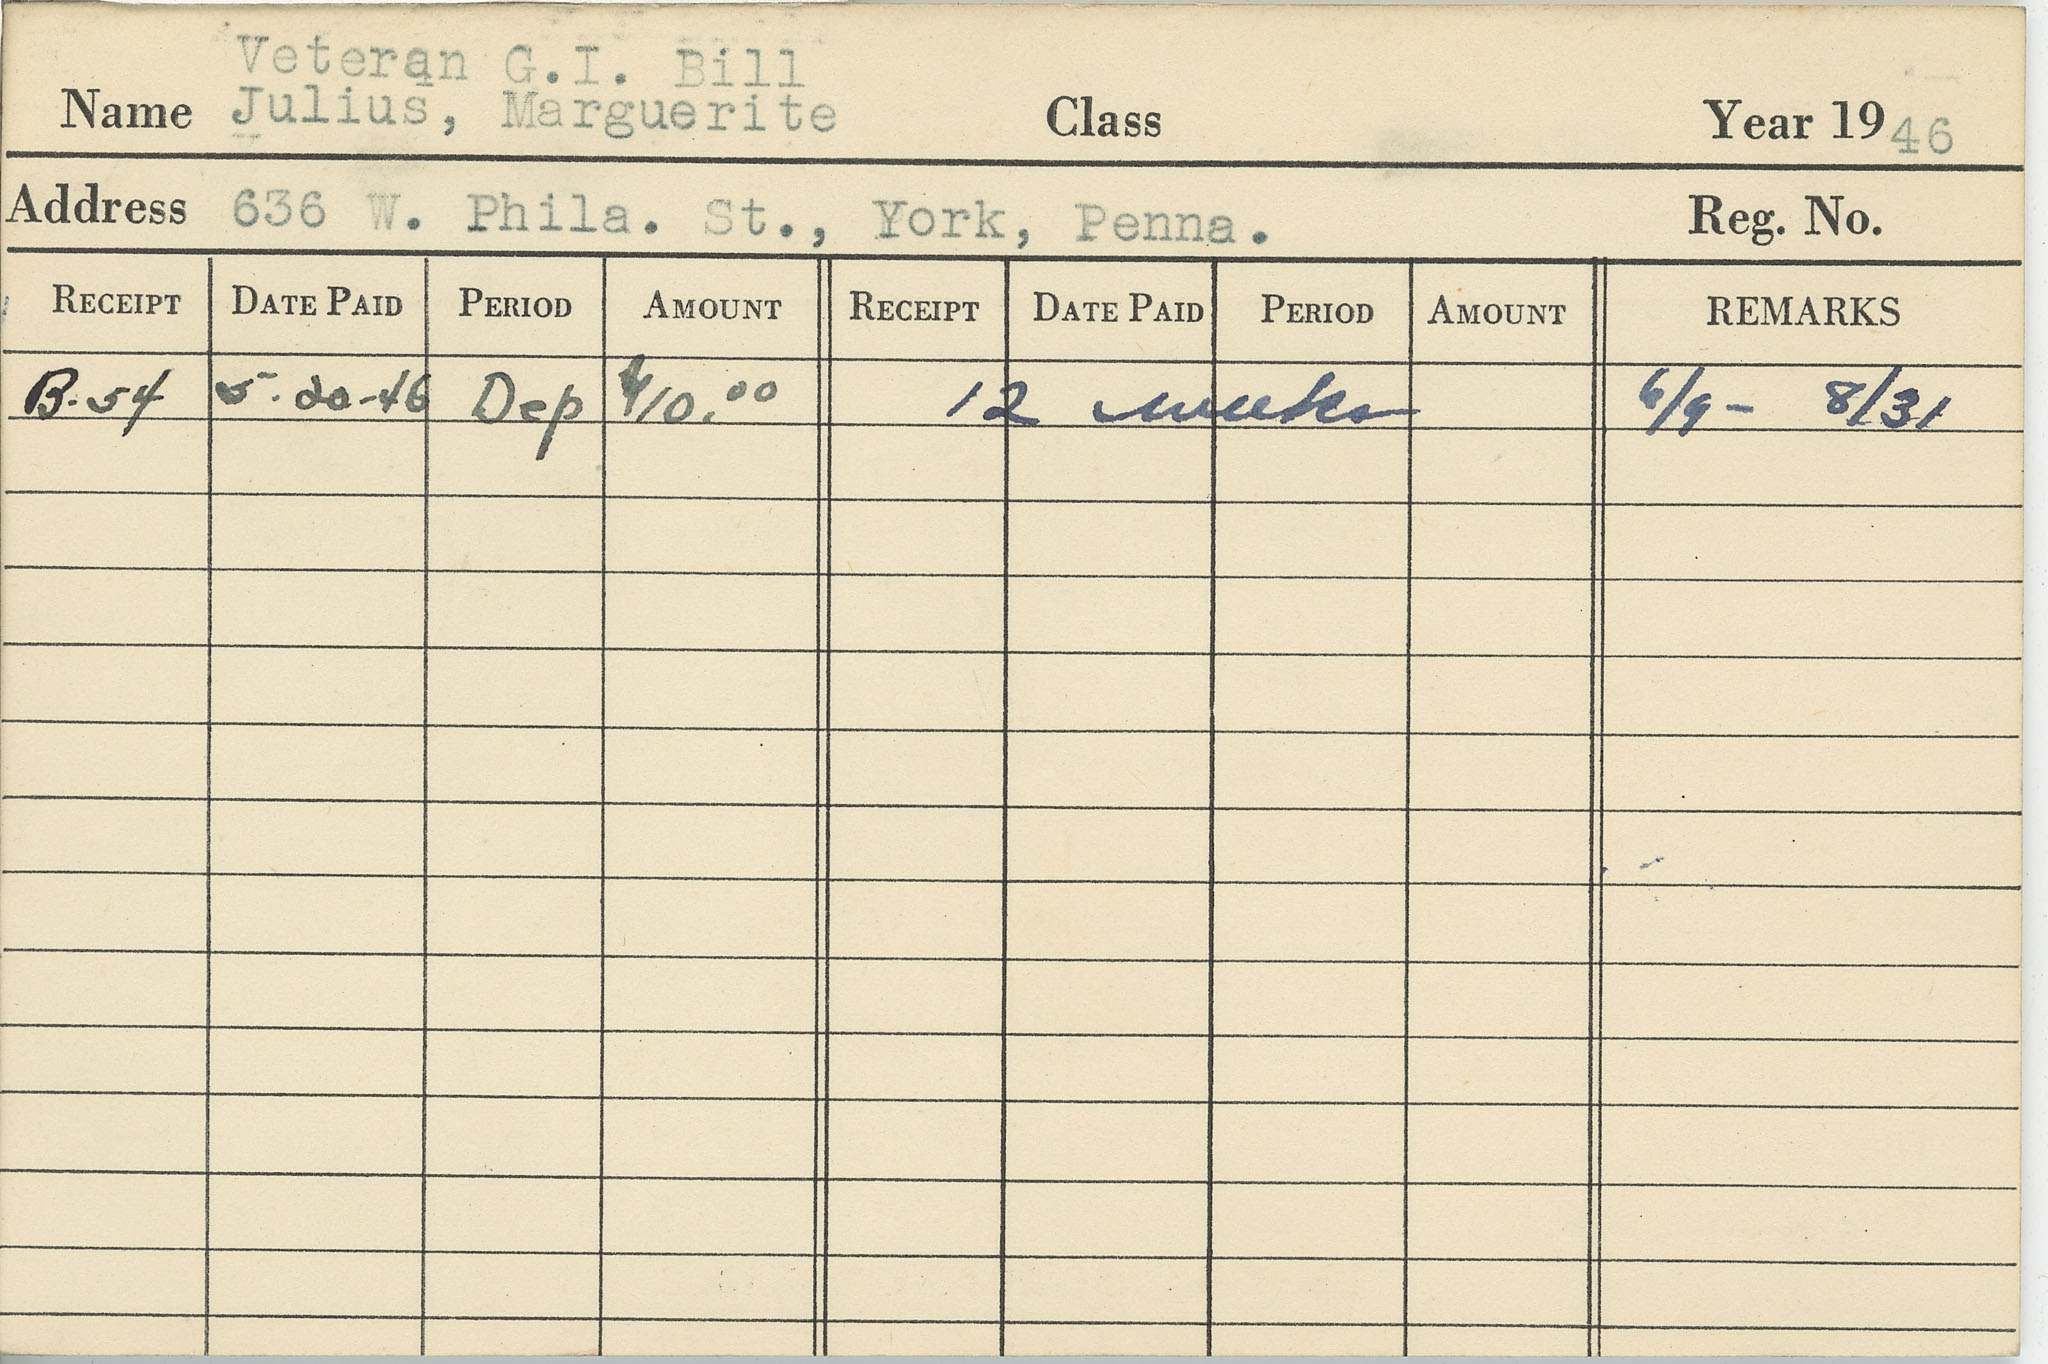 Veteran G.I. Bill
Name Julius, Marguerite Class Year 1946
Address 636 W. Phila. St., York, Penna. Reg. No.
RECEIPT DATE PAID PERIOD AMOUNT RECEIPT DATE PAID PERIOD AMOUNT REMARKS
B-54 5-20-46 Dep $10.00 12 weeks 6/9 - 8/31